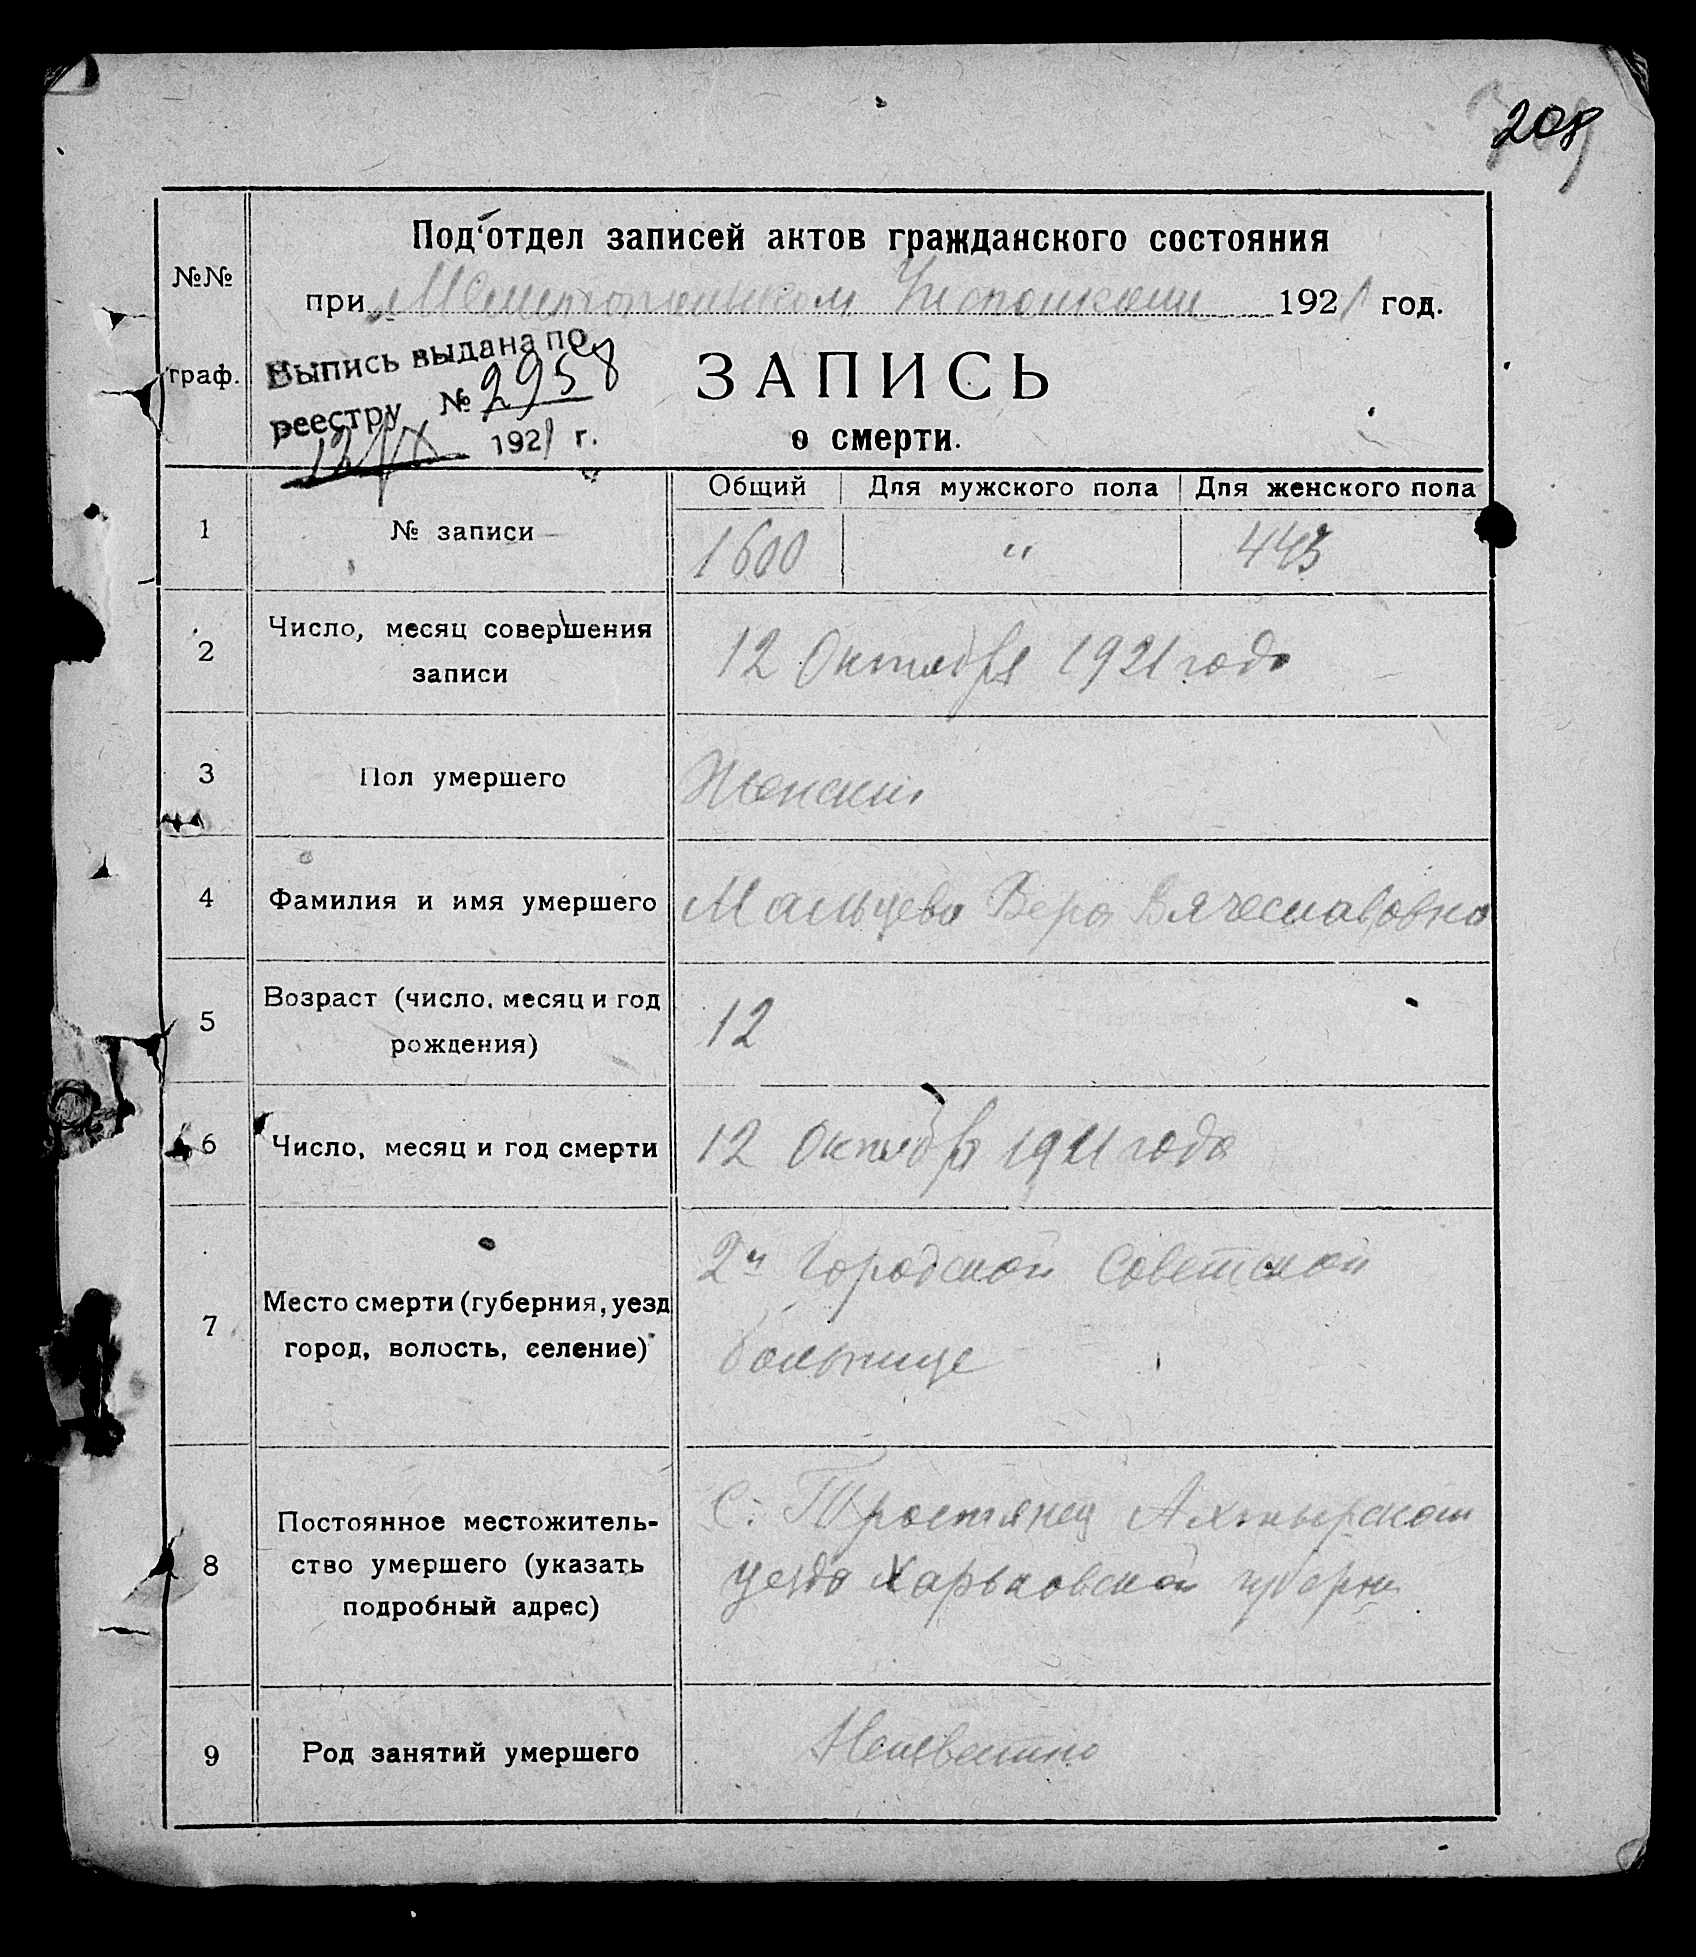 208
Под'отдел записей актов гражданского состояния
№№
при Мелитопольском Исполкоме 1921 год.
граф.
Выпись выдана по
реестру № 2958
12/X 1921 г.
ЗАПИСЬ
о смерти.
Общий Для мужского пола Для женского пола
1 № записи 1600 " 443
2 Число, месяц совершения
записи
12 Октября 1921 года
3 Пол умершего Женский
4 Фамилия и имя умершего Мальцева Вера Вячеславовна
5 Возраст (число, месяц и год
рождения)
12
6 Число, месяц и год смерти 12 Октября 1921 года
7 Место смерти (губерния, уезд
город, волость, селение)
2й Городской Советской
больнице
8 Постоянное местожитель-
ство умершего (указать
подробный адрес)
С. Тростянец Ахтырском
уезда Харьковской губерни
9 Род занятий умершего Неизвестно